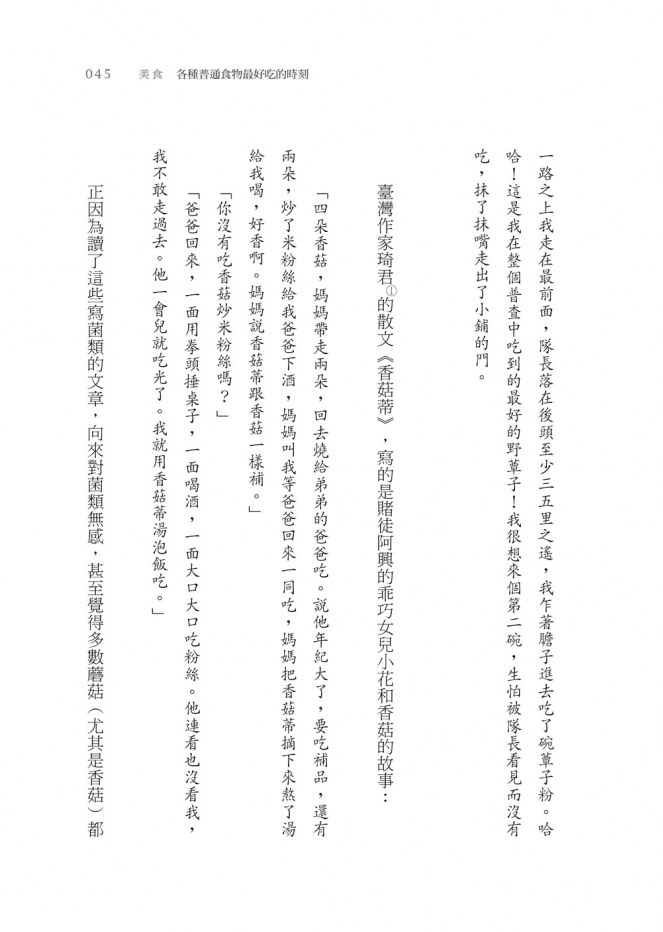 045 美食 各種普通食物最好吃的時刻
一路之上我走在最前面，隊長落在後頭至少三五里之遙，我乍著膽子進去吃了碗蕈子粉。哈
哈！這是我在整個普查中吃到的最好的野蕈子！我很想來個第二碗，生怕被隊長看見而沒有
吃，抹了抹嘴走出了小鋪的門。
臺灣作家琦君①的散文《香菇蒂》，寫的是賭徒阿興的乖巧女兒小花和香菇的故事：
「四朵香菇，媽媽帶走兩朵，回去燒給弟弟的爸爸吃。說他年紀大了，要吃補品，還有
兩朵，炒了米粉絲給我爸爸下酒，媽媽叫我等爸爸回來一同吃，媽媽把香菇蒂摘下來熬了湯
給我喝，好香啊。媽媽說香菇蒂跟香菇一樣補。」
「你沒有吃香菇炒米粉絲嗎？」
「爸爸回來，一面用拳頭捶桌子，一面喝酒，一面大口大口吃粉絲。他連看也沒看我，
我不敢走過去。他一會兒就吃光了。我就用香菇蒂湯泡飯吃。」
正因為讀了這些寫菌類的文章，向來對菌類無感，甚至覺得多數蘑菇（尤其是香菇）都